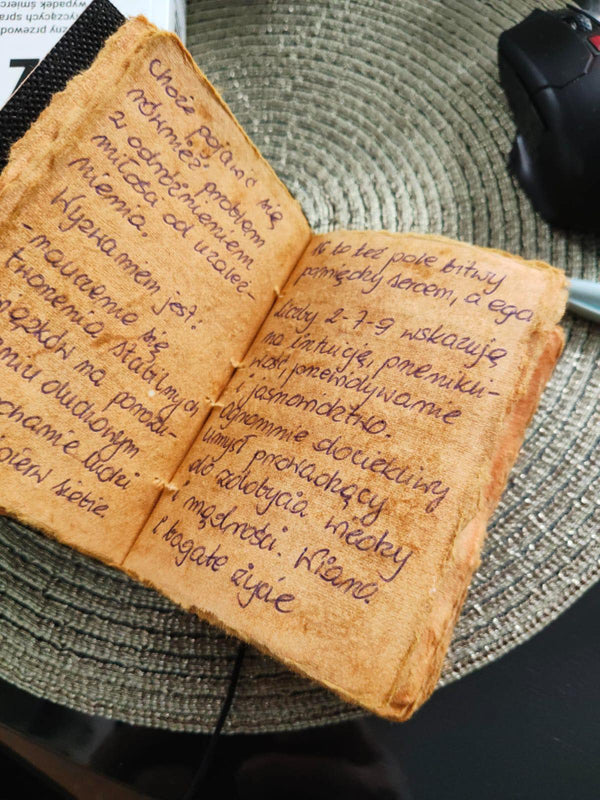 wypadek śmierc
yczących spra
zny przewod
może pojawić się
również problem
z odróżnieniem
miłości od uzależ-
nienia.
Wyzwaniem jest:
-nauczenie się
tworzenia stabilnych
iązków na porozu-
niu duchowym
ochanie ludzi
pierw siebie.
16 to też pole bitwy
pomiędzy sercem, a ego.
Liczby 2-7-9 wskazują
na intuicję, przenikli-
wość, przewidywanie
i jasnowidztwo.
Ogromnie dociekliwy
umysł prowadzący
do zdobycia wiedzy
i mądrości. Wiara
i bogate życie